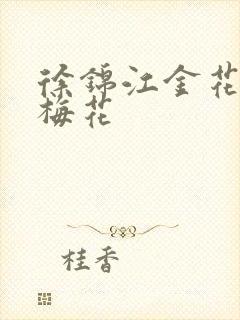 徐锦江金花
梅花
桂香